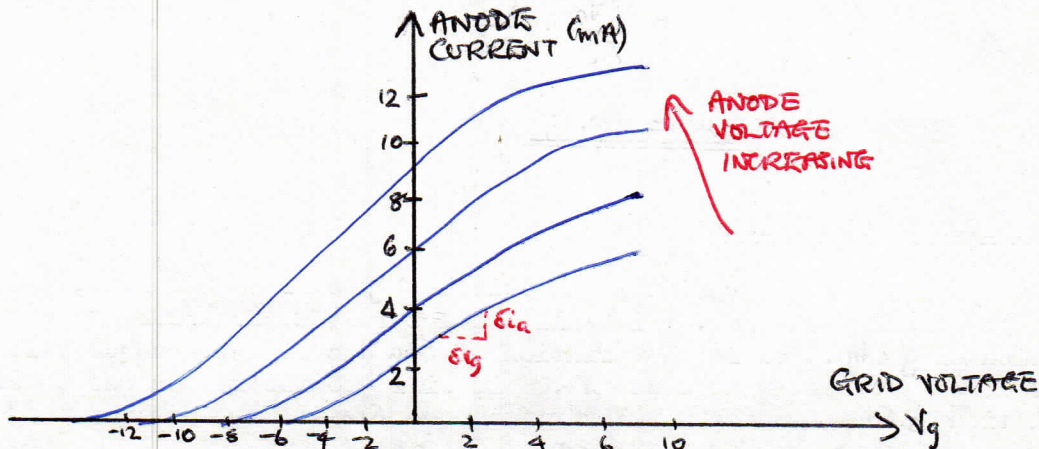 ANODE
CURRENT (mA)
12
10
8
6
4
2
ANODE
VOLTAGE
INCREASING
δia
δvg
GRID VOLTAGE
Vg
-12 -10 -8 -6 -4 -2 2 4 6 10